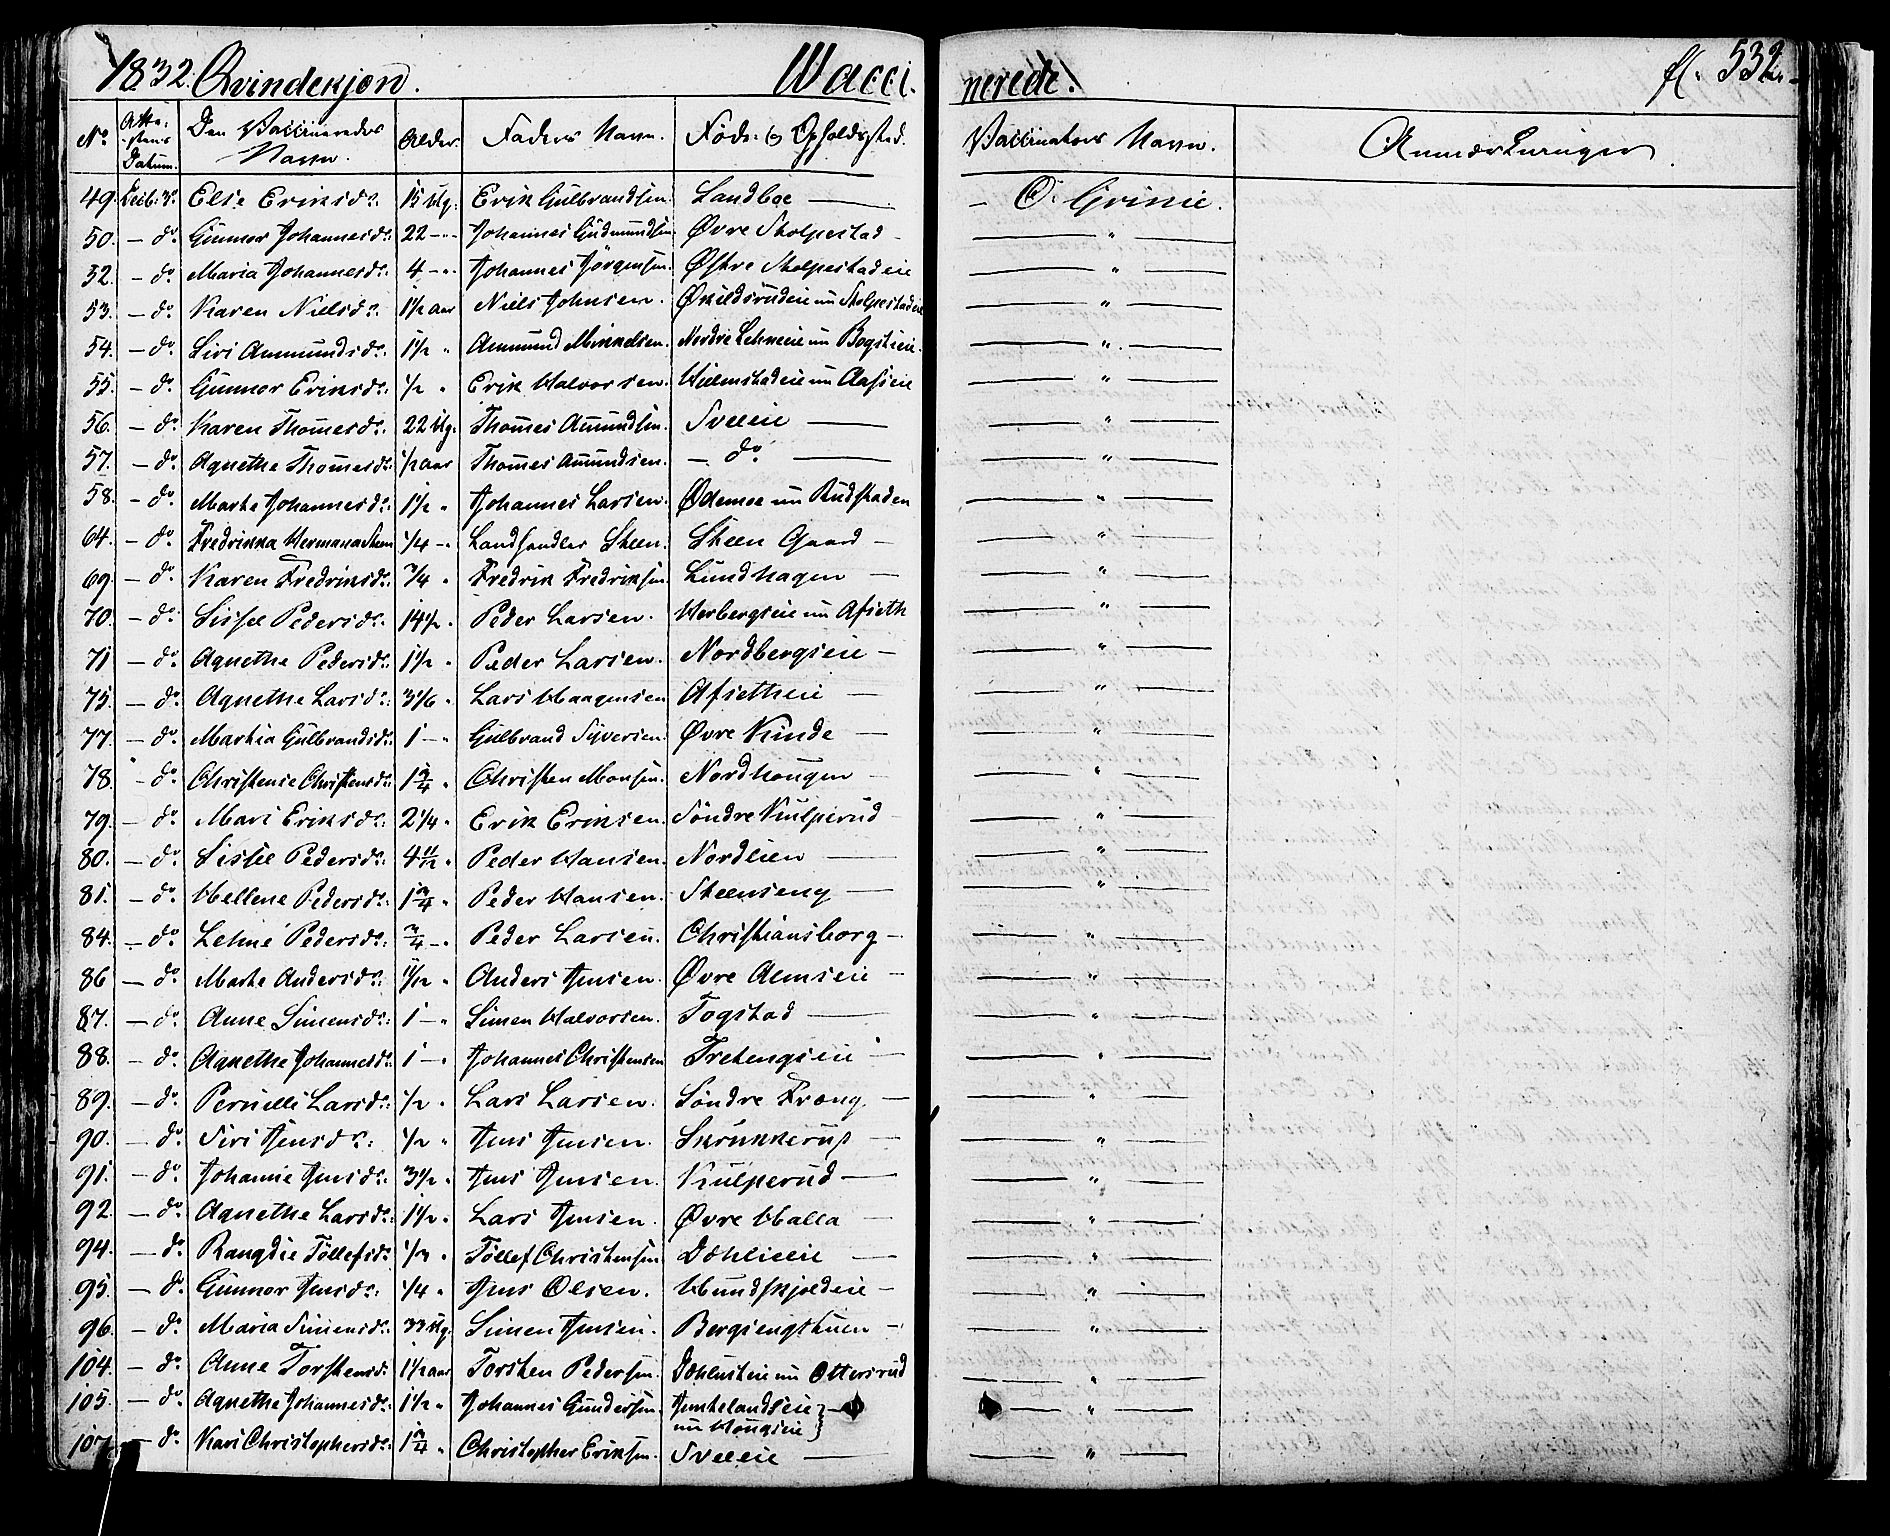 1832. Qvindekjøn. Wacci- nerede. fl. 532
No Atte-stens Datum. Den Vaccineredes Navn. Alder. Faders Navn. Føde- og Opholdssted. Vaccinateurs Navn. Anmærkninger.
49. Decb. 3. Else Eriksdr. 15 Ug. Erik Gulbrandsen Landboe — O. Grinie.
50. — do. Gunnor Johannesdr. 22 — " Johannes Gudmundsen Øvre Skolpestad — "
52. — do. Maria Johannesdr. 4 — " Johannes Jørgensen. Østre Skolpestadeie — "
53. — do. Karen Nielsdr. 1½ aar Niels Johnsen. Øskildsrudeie nu Skolpestadeie — "
54. — do. Siri Ammundsdr. 1½ " Ammund Mikkelsen. Nordre Lehneeie nu Bogstieie. — "
55. — do. Gunnor Eriksdr. ½ " Erik Halvorsen. Hielmstadeie nu Aaseie — "
56. — do. Karen Thomesdr. 22 Ug. Thomes Amundsen. Sveeie — "
57. — do. Agnethe Thomesdr. ½ aar Thomes Amundsen. — do — "
58. — do. Marthe Johannesdr. 1½ " Johannes Larsen. Ødemoe nu Rudstaden — "
64. — do. Fredrikka Hermana Steen ¼ — " Landhandler Steen. Steen Gaard — "
69. — do. Karen Fredriksdr. ¾ " Fredrik Fredriksen Lundhagen — "
70. — do. Sissel Pedersdr. 14½ " Peder Larsen. Horbergseie nu Afseth — "
71. — do. Agnethe Pedersdr. 1½ " Peder Larsen. Nordbergseie — "
75. — do. Agnethe Larsdr. 3 1/6 " Lars Haagensen Afsetheie — "
77. — do. Marthia Gulbrandsdr. 1 — " Gulbrand Syversen. Øvre Kinde — "
78. — do. Christense Christensdr. 1¾ " Christen Monsen. Nordhougen — "
79. — do. Mari Eriksdr. 2¼ " Erik Eriksen. Søndre Kulperud — "
80. — do. Sissel Pedersdr. 4 11/12 " Peder Hansen. Nordlien — "
81. — do. Hellene Pedersdr. 1¾ " Peder Hansen. Steenseng — "
84. — do. Lehne Pedersdr. ¾ — " Peder Larsen. Christiansborg — "
86 — do. Marthe Andersdr. 11/12 " Anders Jensen. Øvre Almseie — "
87. — do. Anne Simensdr. 1 — " Simen Halvorsen. Togstad — "
88. — do. Agnethe Johannesdr. 1 — " Johannes Christensen Tretengseie — "
89. — do. Pernille Larsdr. ½ " Lars Larsen. Søndre Fræng. — "
90. — do. Siri Jensdr. ½ " Jens Jensen. Skrukkerup — "
91. — do. Johanne Jensdr. 3½ " Jens Jensen. Kulperud — "
92. — do. Agnethe Larsdr. 1½ " Lars Jensen. Øvre Halla — "
94. — do. Rangdie Tollefsdr. ⅓ " Tollef Christensen Døhlieeie — "
95. — do. Gunnor Jensdr. ¼ " Jens Olsen. Hundskjoldeie — "
96. — do. Maria Simensdr. 33 Ug. Simen Jensen. Bergsengstuen — "
104. — do. Anne Torstensdr. 1½ aar Torsten Pedersen. Døhlensteie nu Ottersrud — "
105. — do. Agnethe Johannesdr. 1½ " Johannes Gundersen. Jenhelandseie — "
nu Hougseie
107. — do. Kari Christophersdr. 1¾ " Christopher Eriksen. Sveeie — "